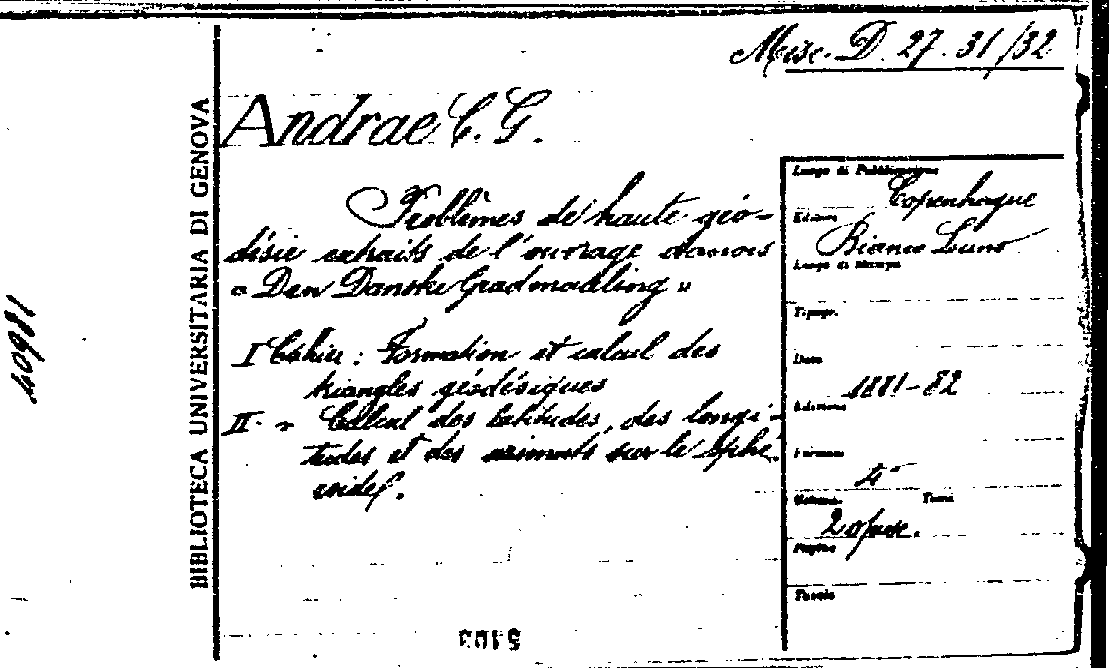 Misc. D. 27. 31/32
Andrae C. G.
Problèmes de haute géo-
désie extraits de l'ouvrage danois
"Den Danske Gradmaaling"
I Cahier: Formation et calcul des
triangles géodésiques
II - " Calcul des latitudes, des longi-
tudes et des azimuts sur le sphé-
roide.
BIBLIOTECA UNIVERSITARIA DI GENOVA
40981
Luogo di Pubblicazione
Copenhague
Editore
Bianco Luno
Luogo di Stampa
Tipogr.
Data
1881-82
Edizione
Formato
4°
Volume Tomi
2 opusc.
Pagine
Tavole